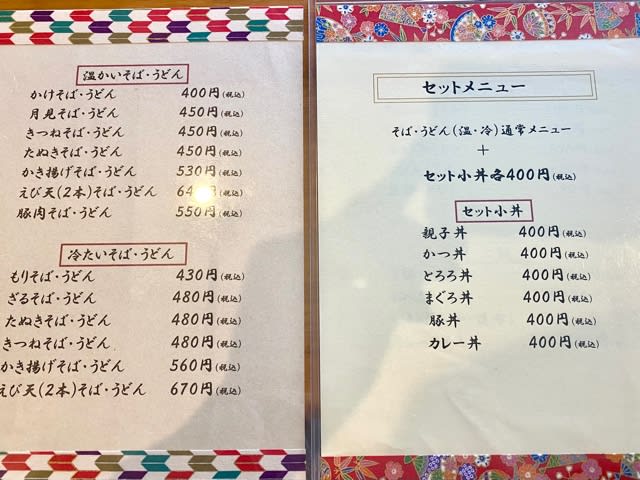 温かいそば・うどん
かけそば・うどん 400円(税込)
月見そば・うどん 450円(税込)
きつねそば・うどん 450円(税込)
たぬきそば・うどん 450円(税込)
かき揚げそば・うどん 530円(税込)
えび天(2本)そば・うどん (税込)
豚肉そば・うどん 550円(税込)
冷たいそば・うどん
もりそば・うどん 430円(税込)
ざるそば・うどん 480円(税込)
たぬきそば・うどん 480円(税込)
きつねそば・うどん 480円(税込)
かき揚げそば・うどん 560円(税込)
えび天(2本)そば・うどん 670円(税込)
セットメニュー
そば・うどん(温・冷)通常メニュー
+
セット小丼各400円(税込)
セット小丼
親子丼 400円(税込)
かつ丼 400円(税込)
とろろ丼 400円(税込)
まぐろ丼 400円(税込)
豚丼 400円(税込)
カレー丼 400円(税込)